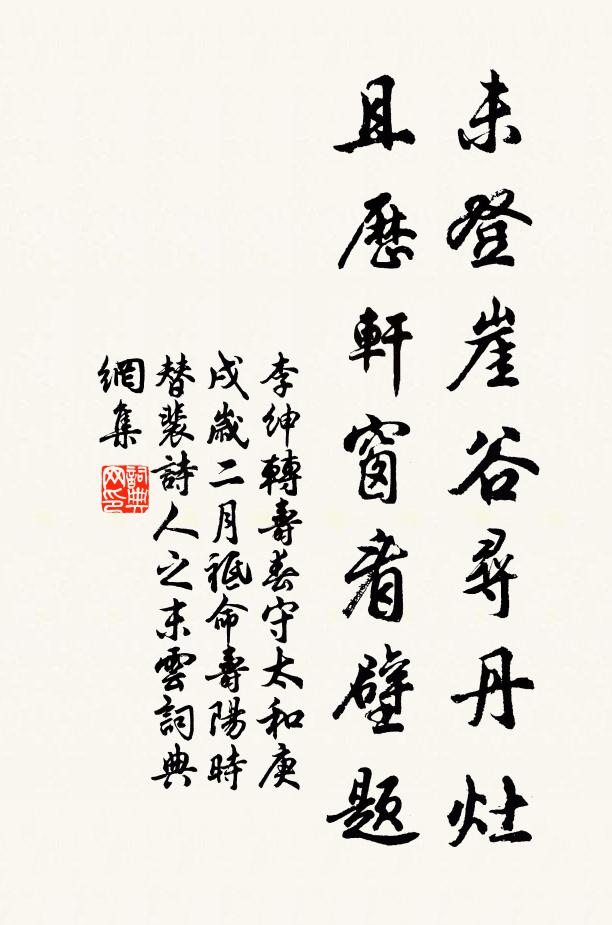 未登崖谷尋丹灶
且歷軒窗看壁題
李紳轉壽春守太和庚
戌歲二月祗命壽陽時
替裴詩人之末雲詞典
網集
詞典
网印